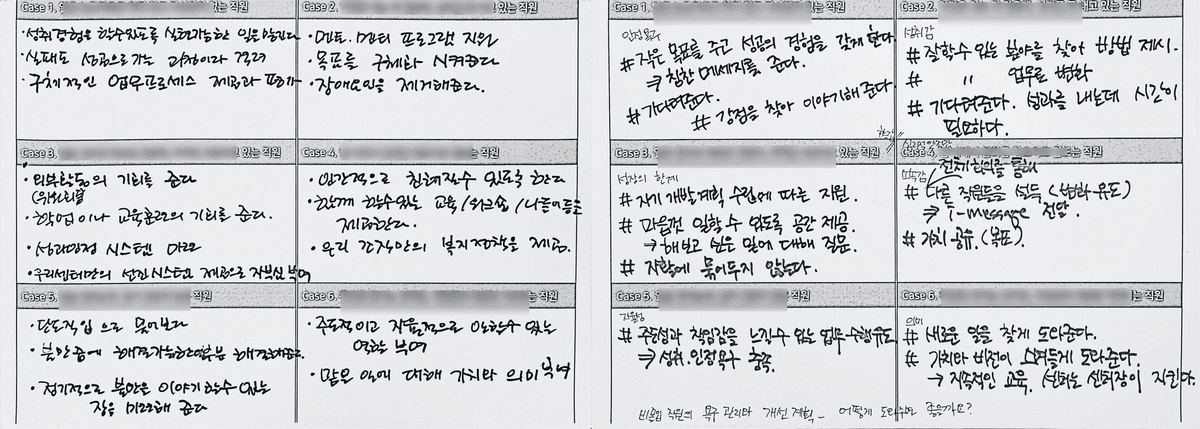 Case 1, 있는 직원
·성취경험을 할수있도록 실현가능한 일을 맡긴다
·실패도 성공으로 가는 과정이라 격려
·구체적인 업무프로세스 제공과 평가
Case 2, 있는 직원
·멘토.멘티 프로그램 지원
·목표를 구체화 시켜준다
·장애요인을 제거해준다.
Case 3, 있는 직원
·외부활동의 기회를 준다
·학업이나 교육훈련의 기회를 준다.
·성과측정 시스템 마련
·우리센터만의 선진시스템 제공으로 자부심 부여
Case 4, 는 직원
·인간적으로 친해질수 있도록 한다
·함께 할수있는 교육/워크숍/나들이등을
제공한다.
·우리 간식만의 복지정책을 제공.
Case 5, 직원
·단도직입으로 물어보다
·불만중에 해결가능한부분 해결해준다.
·정기적으로 불만을 이야기 할수 있는
장을 마련해 준다
Case 6, 는 직원
·주도적이고 자율적으로 일할수 있는
역할 부여
·맡은 일에 대해 가치와 의미 부여
Case 1, 있는 직원
인정욕구
# 작은 목표를 주고 성공의 경험을 갖게 한다
⇒ 칭찬 메세지를 준다.
# 기다려준다.
# 강점을 찾아 이야기해 준다.
Case 2, 내고 있는 직원
성취감
# 잘할수 있는 분야를 찾아 방법 제시.
# 〃 업무로 변화
# 기다려준다. 성과를 내는데 시간이
필요하다.
Case 3, 있는 직원
성장의 한계
# 자기 개발계획 수립에 따른 지원.
# 마음껏 일할 수 있도록 공간 제공.
→ 해보고 싶은 일에 대해 질문.
# 직함에 묶어두지 않는다.
Case 4, 는 직원
소속감
전체 회의를 통해
# 다른 직원들을 설득 (변화 유도)
⇒ I-message 전달.
# 가치 공유.(목표).
Case 5, 직원
자율성
# 주도성과 책임감을 느낄수 있는 업무수행유도
⇒ 성취.인정욕구 충족.
Case 6, 는 직원
의미
# 새로운 일을 찾게 도와준다.
# 가치와 비전이 스며들게 도와준다.
→ 지속적인 교육. 센터는 센터장이 지킨다.
비몰입 직원의 욕구 관리와 개선 계획_ 어떻게 도와주면 좋을까요?